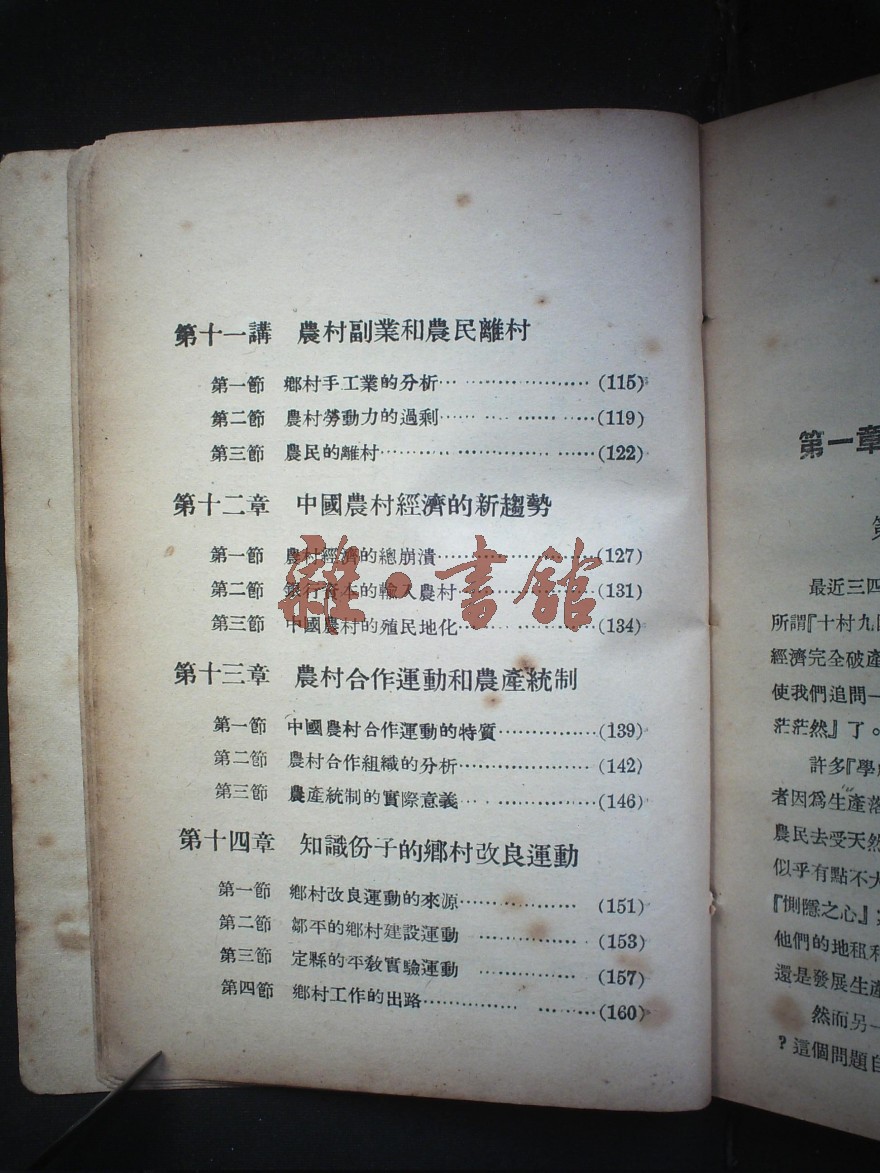 第十一講 農村副業和農民離村
第一節 鄉村手工業的分析…………………(115)
第二節 農村勞動力的過剩…………………(119)
第三節 農民的離村…………………(122)
第十二章 中國農村經濟的新趨勢
第一節 農村經濟的總崩潰…………………(127)
第二節 銀行資本的輸入農村…………………(131)
第三節 中國農村的殖民地化…………………(134)
第十三章 農村合作運動和農產統制
第一節 中國農村合作運動的特質……………(139)
第二節 農村合作組織的分析…………………(142)
第三節 農產統制的實際意義…………………(146)
第十四章 知識份子的鄉村改良運動
第一節 鄉村改良運動的來源………………(151)
第二節 鄒平的鄉村建設運動 ……………(153)
第三節 定縣的平敎實驗運動 ……………(157)
第四節 鄉村工作的出路…………………(160)
雜·書館
第一章
最近三四
所謂『十村九
經濟完全破產
使我們追問一
茫茫然』了。
許多『學
者因爲生產落
農民去受天然
似乎有點不大
『惻隱之心』
他們的地租和
還是發展生產
然而另一
?這個問題自